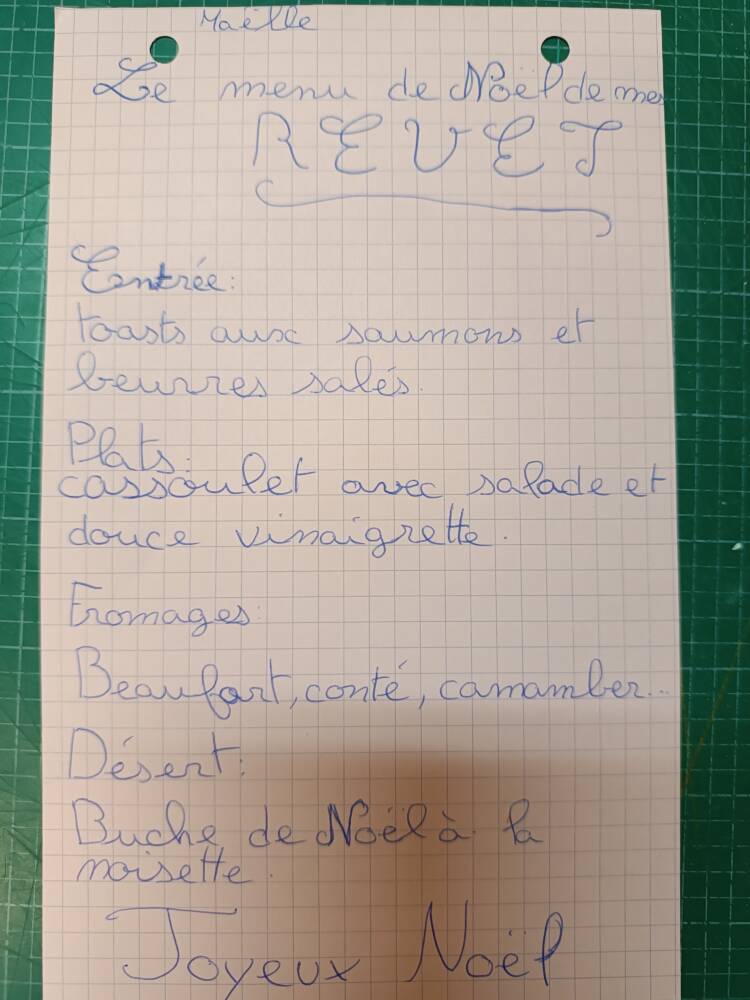 Maëlle
Le menu de Noël de mes
REVES
Entrée:
toasts aux saumons et
beurres salés.
Plats:
cassoulet avec salade et
douce vinaigrette.
Fromages:
Beaufort, conté, camamber...
Désert:
Buche de Noël à la
noisette.
Joyeux Noël